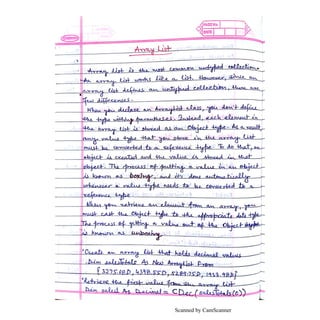 Array List
Array List is the most common untyped collection.
An array list works like a list. However, since an
array list defines an untyped collection, there are
few differences.
When you declare an Arraylist class, you don't define
the type within parentheses. Instead, each element in
the array list is stored as an Object type. As a result,
any value type that you store in the array list
must be converted to a reference type. To do that, an
object is created and the value is stored in that
object. The process of putting a value in an object
is known as boxing, and it's done automatically
whenever a value type needs to be converted to a
reference type.
When you retrieve an element from an array, you
must cast the Object type to the appropriate data type.
The process of getting a value out of the Object type
is known as unboxing.
'Create an array list that holds decimal values
Dim salesTotals As New ArrayList From
'Retrieve the first value from the array list
Dim sales1 As Decimal = CDec(salesTotals(0))
Scanned by CamScanner